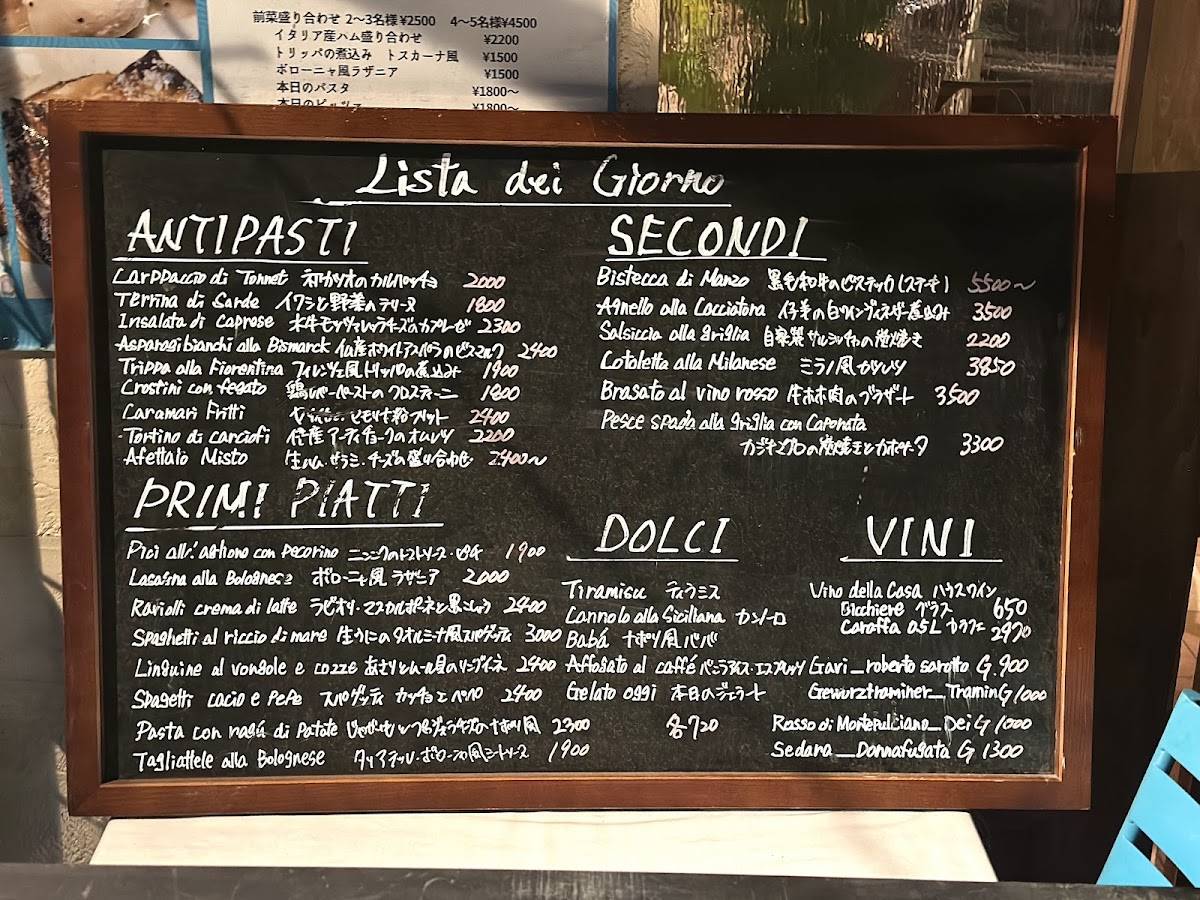 前菜盛り合わせ 2〜3名様¥2500 4〜5名様¥4500
イタリア産ハム盛り合わせ ¥2200
トリッパの煮込み トスカーナ風 ¥1500
ボローニャ風ラザニア ¥1500
本日のパスタ ¥1800〜
本日のピッツァ ¥1800〜
Lista dei Giorno
ANTIPASTI
Carppaccio di Tonnet 初カツオのカルパッチョ 2000
Terrina di Sarde イワシと野菜のテリーヌ 1800
Insalata di Caprese 水牛モッツァレッラチーズのカプレーゼ 2300
Asparagi bianchi alla Bismarck 仏産ホワイトアスパラのビスマルク 2400
Trippa alla Fiorentina フィレンツェ風トリッパの煮込み 1900
Crostini con fegato 鶏レバーペーストのクロスティーニ 1800
Caramari Fritti フリット 2400
Tortino di carciofi 伊産アーティチョークのオムレツ 2200
Afettato Misto 生ハム・サラミ・チーズの盛り合わせ 2400〜
PRIMI PIATTI
Pici all'aglione con pecorino ニンニクのトマトソース・ピチ 1900
Lasagna alla Bolognese ボローニャ風 ラザニア 2000
Ravioli crema di latte ラビオリ・マスカルポーネと黒こしょう 2400
Spaghetti al riccio di mare 生うにのタオルミーナ風スパゲッティ 3000
Linguine al vongole e cozze あさりとムール貝のリングイネ 2400
Spagetti cacio e pepe スパゲッティ カッチョエペペ 2400
Pasta con ragú di Patate ナポリ風 2300
Tagliattele alla Bolognese タリアテッレ・ボローニャ風ミートソース 1900
SECONDI
Bistecca di Manzo 黒毛和牛のビステッカ(ステーキ) 5500〜
Agnello alla Cacciatora 仔羊の白ワインヴィネガー煮込み 3500
Salsiccia alla griglia 自家製サルシッチャの炭焼き 2200
Cotoletta alla Milanese ミラノ風カツレツ 3850
Brasato al vino rosso 牛ホホ肉のブラザート 3500
Pesce spada alla griglia con Caponata
カジキマグロの炭焼きとカポナータ 3300
DOLCI
Tiramisu ティラミス
Cannolo alla Siciliana カンノーロ
Babá ナポリ風ババ
Affogato al caffé バニラアイス・エスプレッソ
Gelato oggi 本日のジェラート
各720
VINI
Vino della Casa ハウスワイン
Bicchiere グラス 650
Caraffa 0.5L カラフェ 2970
Gavi_roberto sarotto G 900
Gewurztraminer_Tramin G 1000
Rosso di Montepulciano_Dei G 1000
Sedara_Donnafugata G 1300